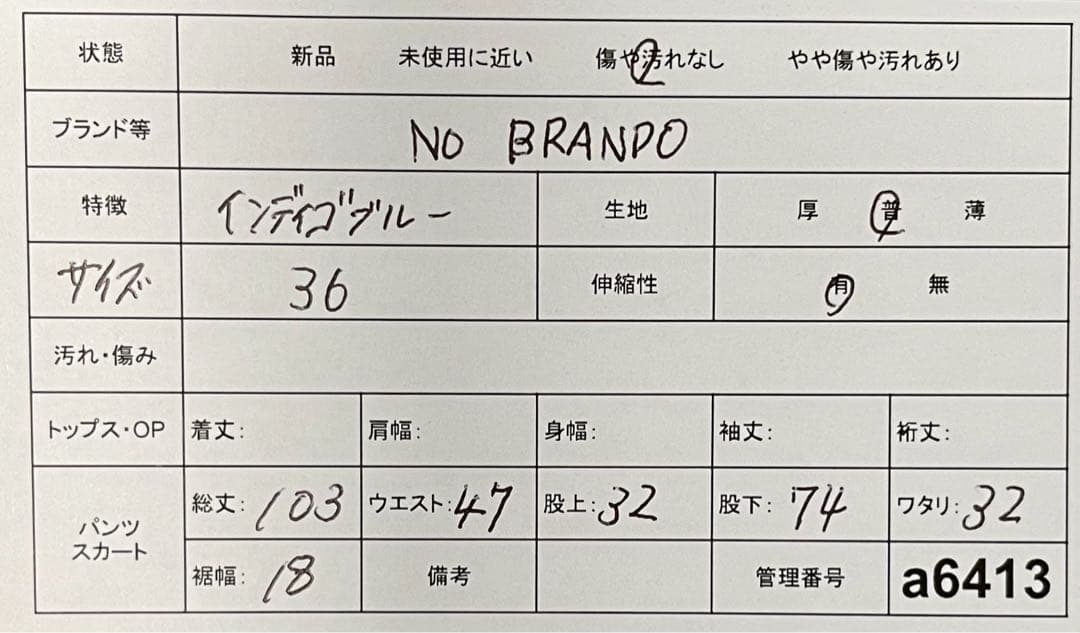 状態 新品 未使用に近い 傷や汚れなし やや傷や汚れあり
ブランド等 NO BRANDO
特徴 インディゴブルー 生地 厚 普 薄
サイズ 36 伸縮性 有 無
汚れ・傷み
トップス・OP 着丈: 肩幅: 身幅: 袖丈: 裄丈:
パンツ スカート 総丈: 103 ウエスト: 47 股上: 32 股下: 74 ワタリ: 32
裾幅: 18 備考 管理番号 a6413